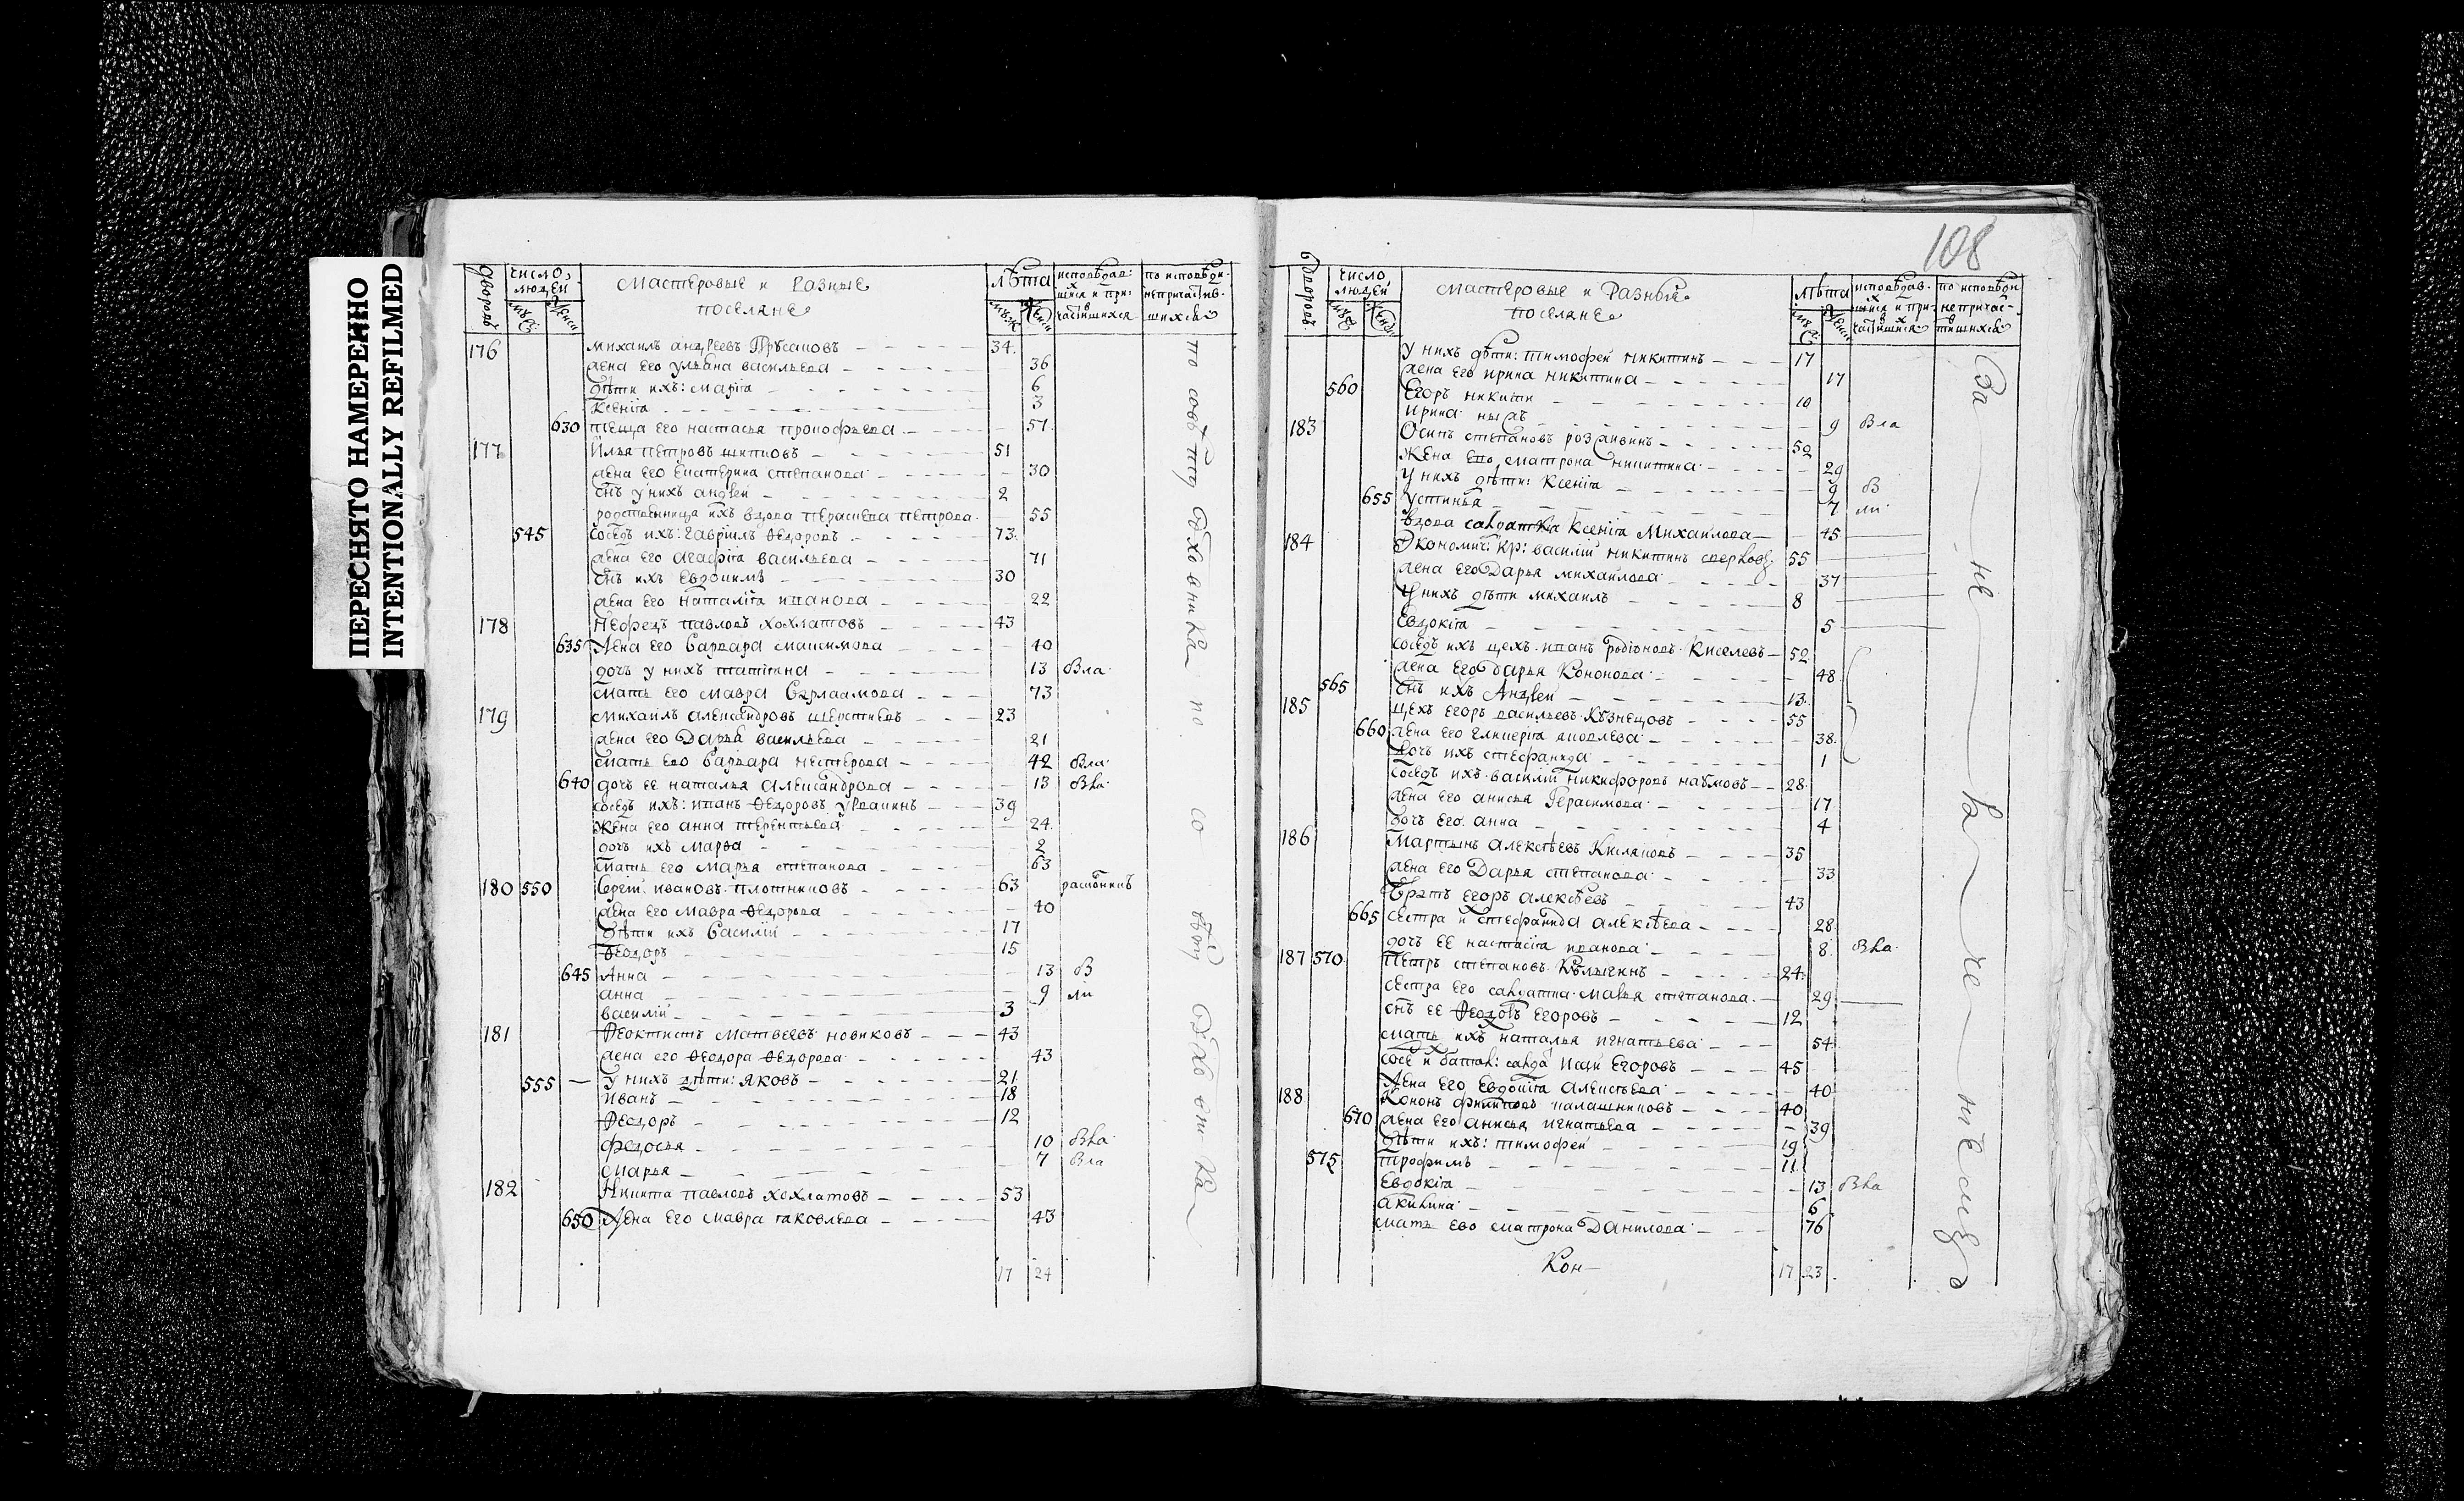 ПЕРЕСНЯТО НАМЕРЕННО
INTENTIONALLY REFILMED
дворовъ число людей мастеровые и разные поселяне лѣта исповѣдав: шихся и при: частившихся
176 михаилъ андреевъ 34
жена его ульяна васильева 36
дѣти ихъ: марїя 6
ксенїя 3
630 теща его настасья прокофьева 57
177 Илья петровъ 51
жена его екатерина степанова 30
снъ у нихъ андрей 2
родственница ихъ вдова параскева петрова 55
545 сосѣдъ ихъ: гаврїилъ ѳедоровъ 73
жена его агафїя васильева 71
снъ ихъ евдокимъ 30
жена его наталїя иванова 22
178 павловъ хохлатовъ 43
635 жена его варвара максимова 40
дочъ у нихъ татїяна 13 Вла
мать его мавра варлаамова 73
179 михаилъ александровъ 23
жена его дарья васильева 21
мать его варвара нестерова 42 Вла
640 дочъ ее наталья александрова 13 Вла
сосѣдъ ихъ: иванъ ѳедоровъ 39
жена его анна терентьева 24
дочъ ихъ марѳа 2
мать его марья степанова 63
180 550 сергѣй ивановъ плотниковъ 63
жена его мавра ѳедорова 40
дѣти ихъ василїй 17
ѳеодоръ 15
645 Анна 13 В
анна 9 ли
василїй 3
181 ѳеоктистъ матвеевъ новиковъ 43
жена его ѳеодора ѳедорова 43
555 у нихъ дѣти: яковъ 21
иванъ 18
ѳеодоръ 12
федосья 10 Вла
марья 7 Вла
182 никита павловъ хохлатовъ 53
650 жена его мавра яковлева 43
17 24
108
дворовъ число людей мастеровые и разные поселяне лѣта исповѣдав: по исповѣди
у нихъ дѣти: тимофей никитинъ 17
жена его ирина никитина 17
560 егоръ никитинъ 10
ирина 9 Вла
183 Осипъ степановъ 52
жена его матрона никитина 29
у нихъ дѣти: ксенїя 9 В
655 устинья 7 ли
вдова салдатка ксенїя михайлова 45
184 экономич: кр: василїй никитинъ 55
жена его дарья михайлова 37
у нихъ дѣти михаилъ 8
евдокїя 5
сосѣдъ ихъ цехъ. иванъ родїоновъ киселевъ 52
жена его дарья кононова 48
565 снъ ихъ андрей 13
185 цехъ егоръ васильевъ кузнецовъ 55
660 жена его гликерїя яковлева 38
дочъ ихъ стефанида 1
сосѣдъ ихъ василїй никифоровъ наумовъ 28
жена его анисья герасимова 17
дочъ его анна 4
186 мартынъ алексѣевъ 35
жена его дарья степанова 33
братъ егоръ алексѣевъ 43
665 сестра и стефанида алексѣева 28
дочъ ее настасїя иванова 8 Вла
187 570 петръ степановъ 24
сестра его салдатка марья степанова 29
снъ ее ѳеодотъ егоровъ 12
мать ихъ наталья игнатьева 54
егоровъ 45
жена его евдокїя алексѣева 40
188 кононъ филиповъ калашниковъ 40
670 жена его анисья игнатьева 39
дѣти ихъ: тимофей 19
575 трофимъ 11
евдокїя 13 Вла
акилина 6
мать ево матрона данилова 76
Кон
17 23